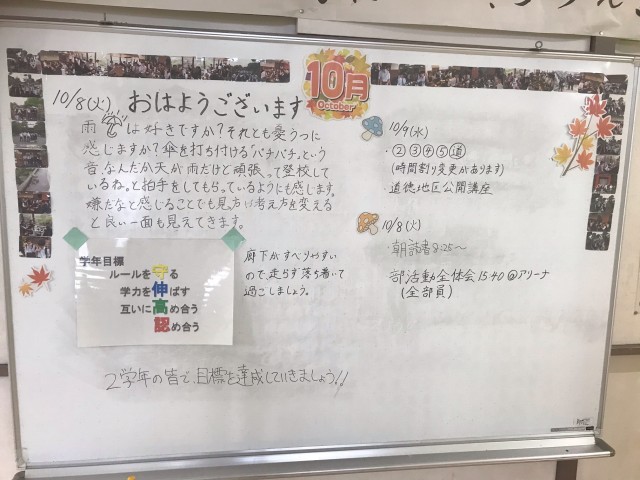 10月
October
10/8(火) おはようございます
雨は好きですか?それとも憂うつに
感じますか?傘を打ち付ける「パチパチ」という
音、なんだか天が「雨だけど頑張って登校して
いるね。」と拍手をしてもらっているようにも感じます。
嫌だなと感じることでも見方や考え方を変える
と良い一面も見えてきます。
学年目標
ルールを守る
学力を伸ばす
互いに高め合う
認め合う
廊下がすべりやすい
ので、走らず落ち着いて
過ごしましょう。
2学年の皆で、目標を達成していきましょう!!
10/9(水)
・②③④⑤道
(時間割り変更があります)
・道徳地区公開講座
10/8(火)
・朝読書8:25〜
部活動全体会15:40@アリーナ
(全部員)